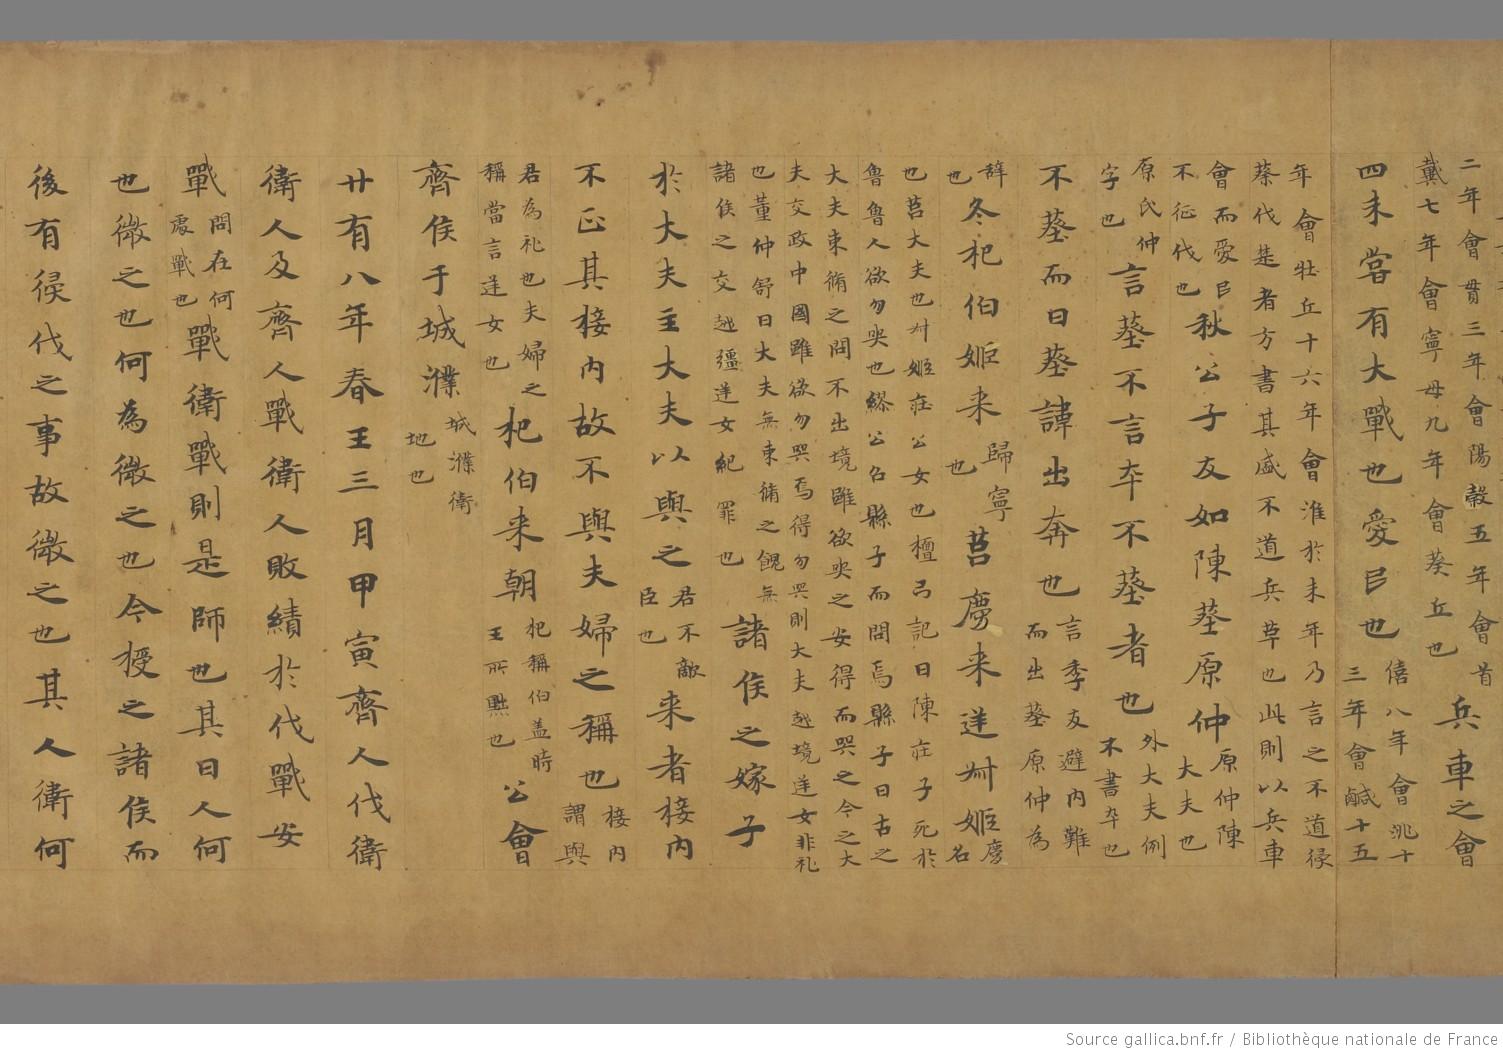 二年會貫三年會陽穀五年會首
戴七年會寧母九年會葵丘也
兵車之會
四未嘗有大戰也愛民也
僖八年會洮十
三年會鹹十五
年會牡丘十六年會淮於末年乃言之不道侵
蔡伐楚者方書其盛不道兵草也此則以兵車
會而愛民
不征伐也
秋公子友如陳葬原仲
原仲陳
大夫也
原氏仲
字也
言葬不言卒不葬者也
外大夫例
不書卒也
不葬而曰葬諱出奔也
言季友避内難
而出葬原仲為
辞
也
冬杞伯姬来
歸寧
也
莒慶来逆叔姬
慶
名
也莒大夫也叔姬莊公女也檀弓記曰陳莊子死於
魯魯人欲勿哭也繆公召縣子而問焉縣子曰古之
大夫束脩之問不出境雖欲哭之安得而哭之今之大
夫交政中國雖欲勿哭焉得勿哭則大夫越境逆女非礼
也董仲舒曰大夫無束脩之餽無
諸侯之交越彊逆女紀罪也
諸侯之嫁子
於大夫主大夫以與之
君不敵
臣也
来者接内
不正其接内故不與夫婦之稱也
接内
謂與
君為礼也夫婦之
稱當言逆女也
杞伯来朝
杞稱伯盖時
王所黜也
公會
齊侯于城濮
城濮衛
地也
廿有八年春王三月甲寅齊人伐衛
衛人及齊人戰衛人敗績於伐戰安
戰
問在何
處戰也
戰衛戰則是師也其曰人何
也微之也何為微之也今授之諸侯而
後有侵伐之事故微之也其人衛何
Source gallica.bnf.fr / Bibliothèque nationale de France